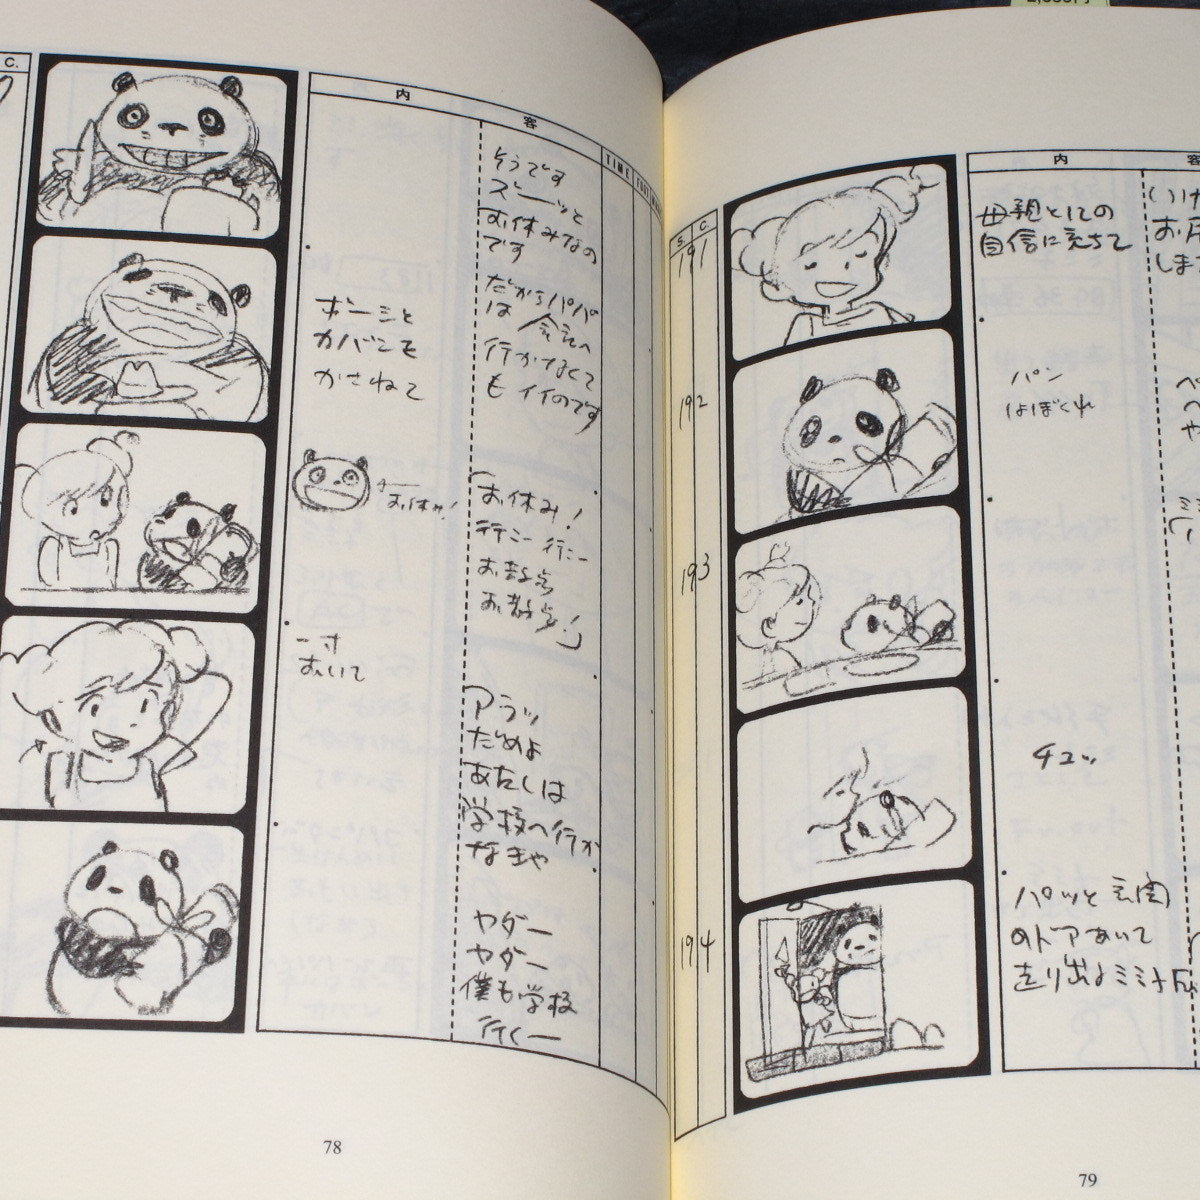 C.
内
容
TIME
そうです
ズーッと
お休みなの
です
ボーシと
カバンを
かさねて
だからパパ
は会社へ
行かなくて
もイイのです
お休み!
お休み!
行こー行こー
お散歩
お散歩!
一寸
おいて
アラッ
だめよ
あたしは
学校へ行か
なきゃ
ヤダー
ヤダー
僕も学校
行くー
78
S.
C.
内
容
191
母親としての
自信に充ちて
いけ
お
しま
192
パン
はぼくれ
ペ
へ
や
193
ミ
チュッ
194
パッと玄関
のドアあいて
走り出るミミ子
79